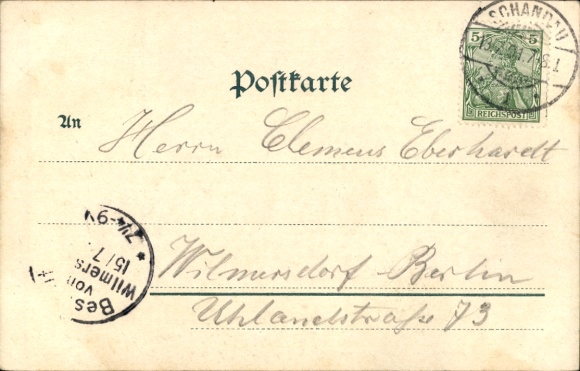 SCHANDAU
5 5
REICHSPOST
Postkarte
An
Herrn Clemens Eberhardt
Wilmersdorf Berlin
Uhlandstraße 73
Bes
von
Wilmers
15/7